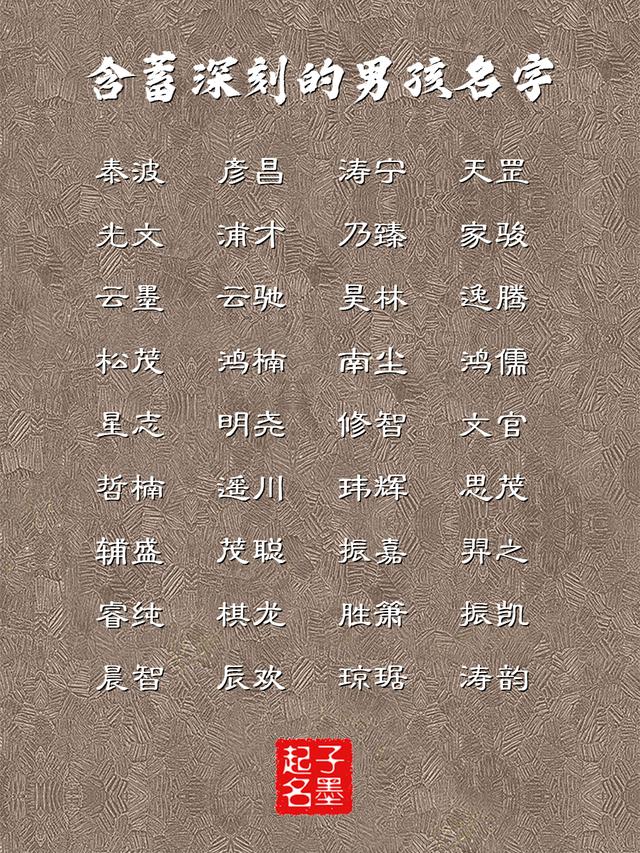 含蓄深刻的男孩名字
泰波 彦昌 涛宁 天罡
光文 浦才 乃臻 家骏
云墨 云驰 昊林 逸腾
松茂 鸿楠 南尘 鸿儒
星志 明尧 修智 文官
哲楠 遥川 玮辉 思茂
辅盛 茂聪 振嘉 羿之
睿纯 棋龙 胜箫 振凯
晨智 辰欢 琼琚 涛韵
子墨
起名